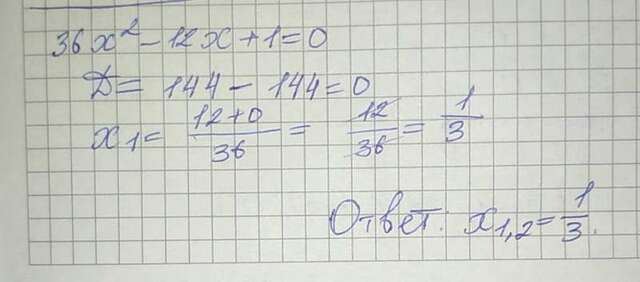 36x² - 12x + 1 = 0
D = 144 - 144 = 0
x₁ = (12+0)/36 = 12/36 = 1/3
Ответ: x₁,₂ = 1/3.